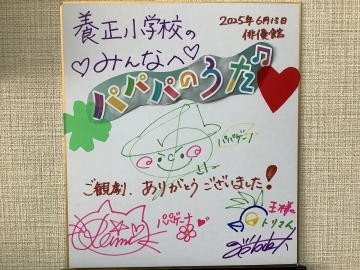 養正小学校の
みんなへ
2025年6月13日
俳優館
パパパのうた
パパゲーノ
ご観劇、ありがとうございました!
パパゲーナ
王様と
トリさん